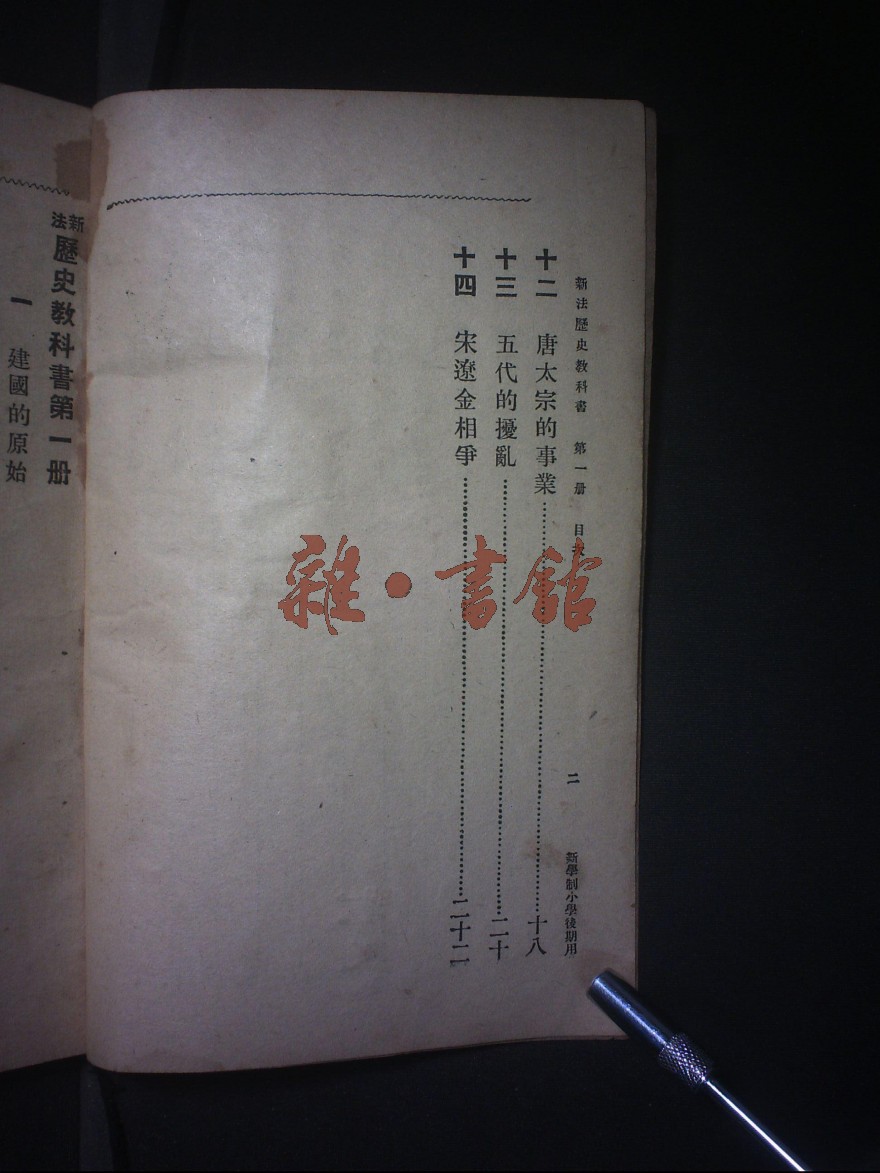 新法歷史教科書 第一册 目次 二 新學制小學後期用
十二 唐太宗的事業……十八
十三 五代的擾亂……二十
十四 宋遼金相爭……二十二
新法歷史教科書第一册
一 建國的原始
雜·書館